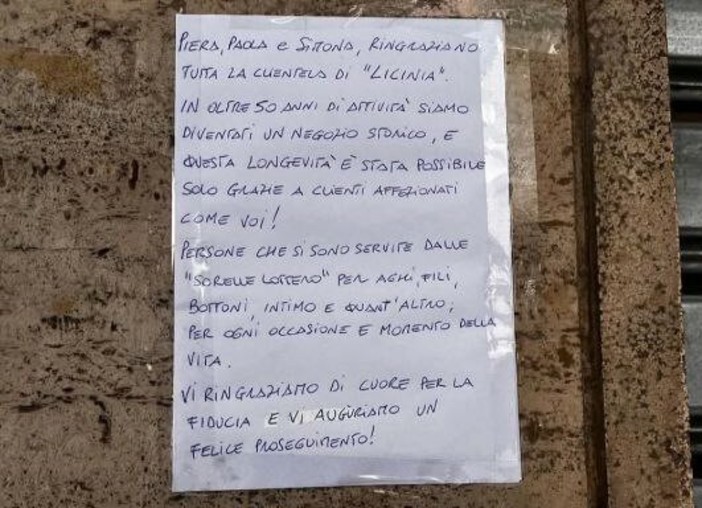 PIERA, PAOLA e SIMONA, RINGRAZIANO
TUTTA LA CLIENTELA DI "LICINIA".
IN OLTRE 50 ANNI DI ATTIVITÀ SIAMO
DIVENTATI UN NEGOZIO STORICO, E
QUESTA LONGEVITÀ È STATA POSSIBILE
SOLO GRAZIE A CLIENTI AFFEZIONATI
COME VOI!
PERSONE CHE SI SONO SERVITE DALLE
"SORELLE LOTTERO" PER AGHI, FILI,
BOTTONI, INTIMO E QUANT'ALTRO;
PER OGNI OCCASIONE E MOMENTO DELLA
VITA.
VI RINGRAZIAMO DI CUORE PER LA
FIDUCIA E VI AUGURIAMO UN
FELICE PROSEGUIMENTO!